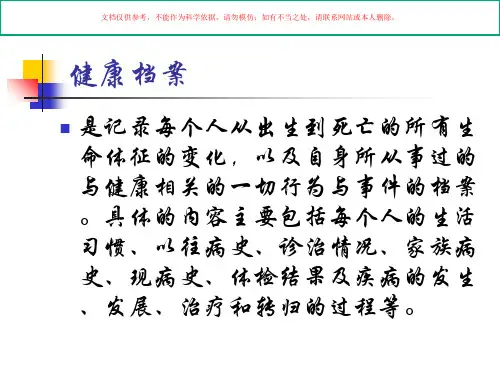 文档仅供参考，不能作为科学依据，请勿模仿；如有不当之处，请联系网站或本人删除。
健康档案
是记录每个人从出生到死亡的所有生
命体征的变化，以及自身所从事过的
与健康相关的一切行为与事件的档案
。具体的内容主要包括每个人的生活
习惯、以往病史、诊治情况、家族病
史、现病史、体检结果及疾病的发生
、发展、治疗和转归的过程等。